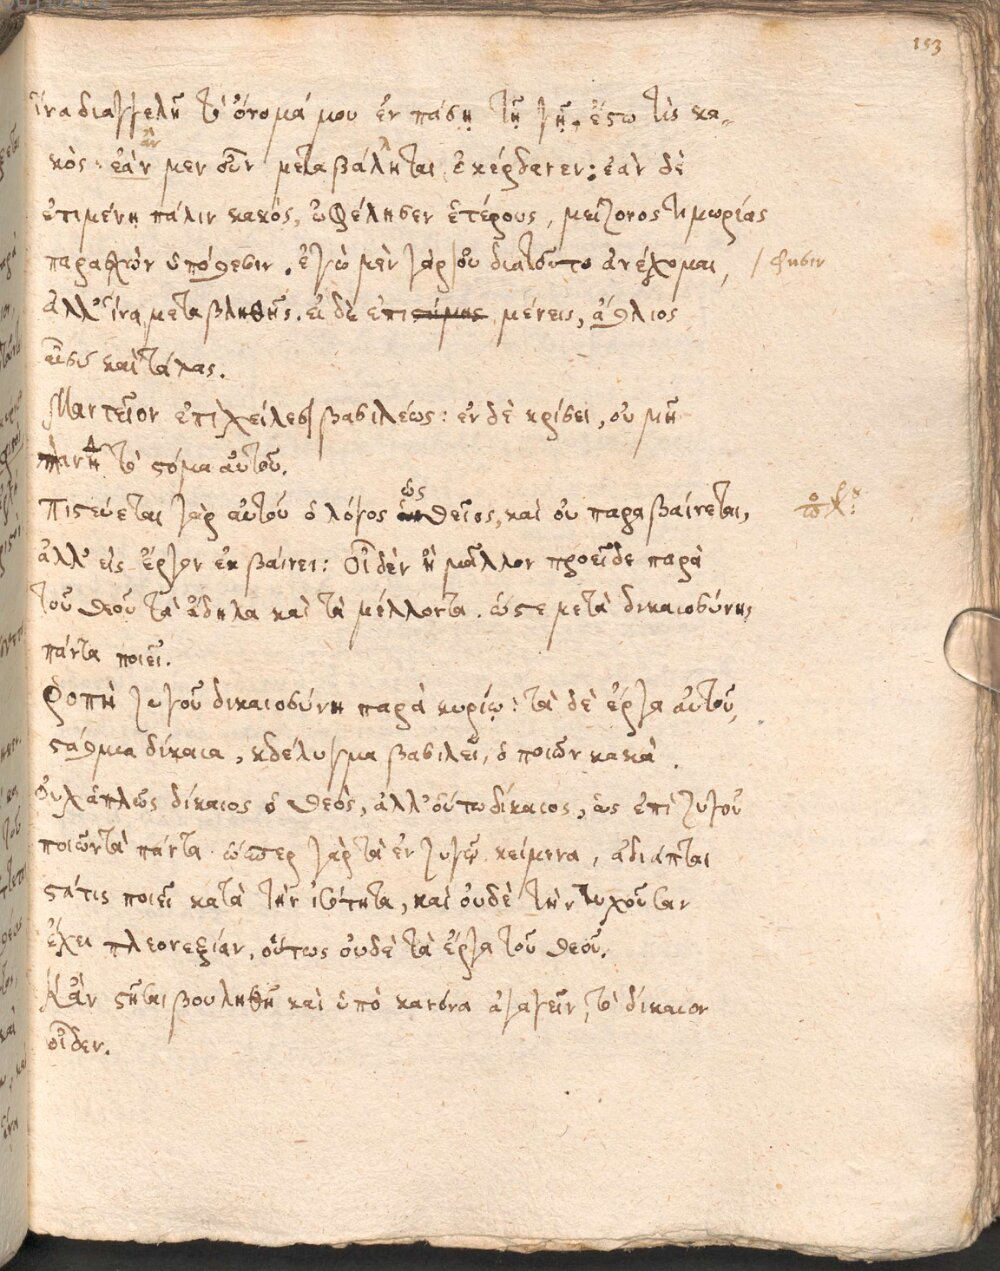 153
ἵνα διαγγελῇ τὸ ὄνομά μου ἐν πάσῃ τῇ γῇ. ἔστω τὶς κα-
κὸς· ἐὰν ἂν μεν οὖν μεταβάληται λ ἐκέρδανεν: ἐὰν δὲ
ἐπιμένῃ πάλιν κακός, ὠφέλησεν ἑτέρους, μείζονος τιμωρίας
ὑπόθεσιν. ἐγὼ μὲν γὰρ σου διατοῦτο ἀνέχομαι, / φησιν
ἀλλ' ἵνα μεταβληθῇς. εἰ δὲ μένεις, ἄθλιος
καὶ τάλας.
Μαντεῖον ἐπὶ χείλεσι βασιλέως: ἐν δὲ κρίσει, οὐ μὴ
τὸ στόμα αὐτοῦ.
Πιστεύεται γὰρ αὐτοῦ ὁ λόγος ὡς θεῖος, καὶ οὐ παραβαίνεται,
ἀλλ' εἰς ἔργον ἐκβαίνει: οἶδεν ἢ μᾶλλον προεῖδε παρὰ
τοῦ θεοῦ τὰ ἄδηλα καὶ τὰ μέλλοντα. ὥστε μετὰ δικαιοσύνης
πάντα ποιεῖ.
Ῥοπὴ ζυγοῦ δικαιοσύνη παρὰ κυρίῳ: τὰ δὲ ἔργα αὐτοῦ,
στάθμια δίκαια, βδέλυγμα βασιλεῖ, ὁ ποιῶν κακὰ.
Οὐχ ἁπλῶς δίκαιος ὁ θεὸς, ἀλλ' οὕτω δίκαιος, ὡς ἐπὶ ζυγοῦ
ποιῶν τὰ πάντα. ὥσπερ γὰρ τὰ ἐν ζυγῷ κείμενα,
τις ποιεῖ κατὰ τὴν ἰσότητα, καὶ οὐδὲ τὴν τυχοῦσαν
ἔχει πλεονεξίαν, οὕτως οὐδὲ τὰ ἔργα τοῦ θεοῦ.
Κἂν βουληθῇ καὶ ὑπὸ ἀγαγεῖν, τὸ δίκαιον
οἶδεν.